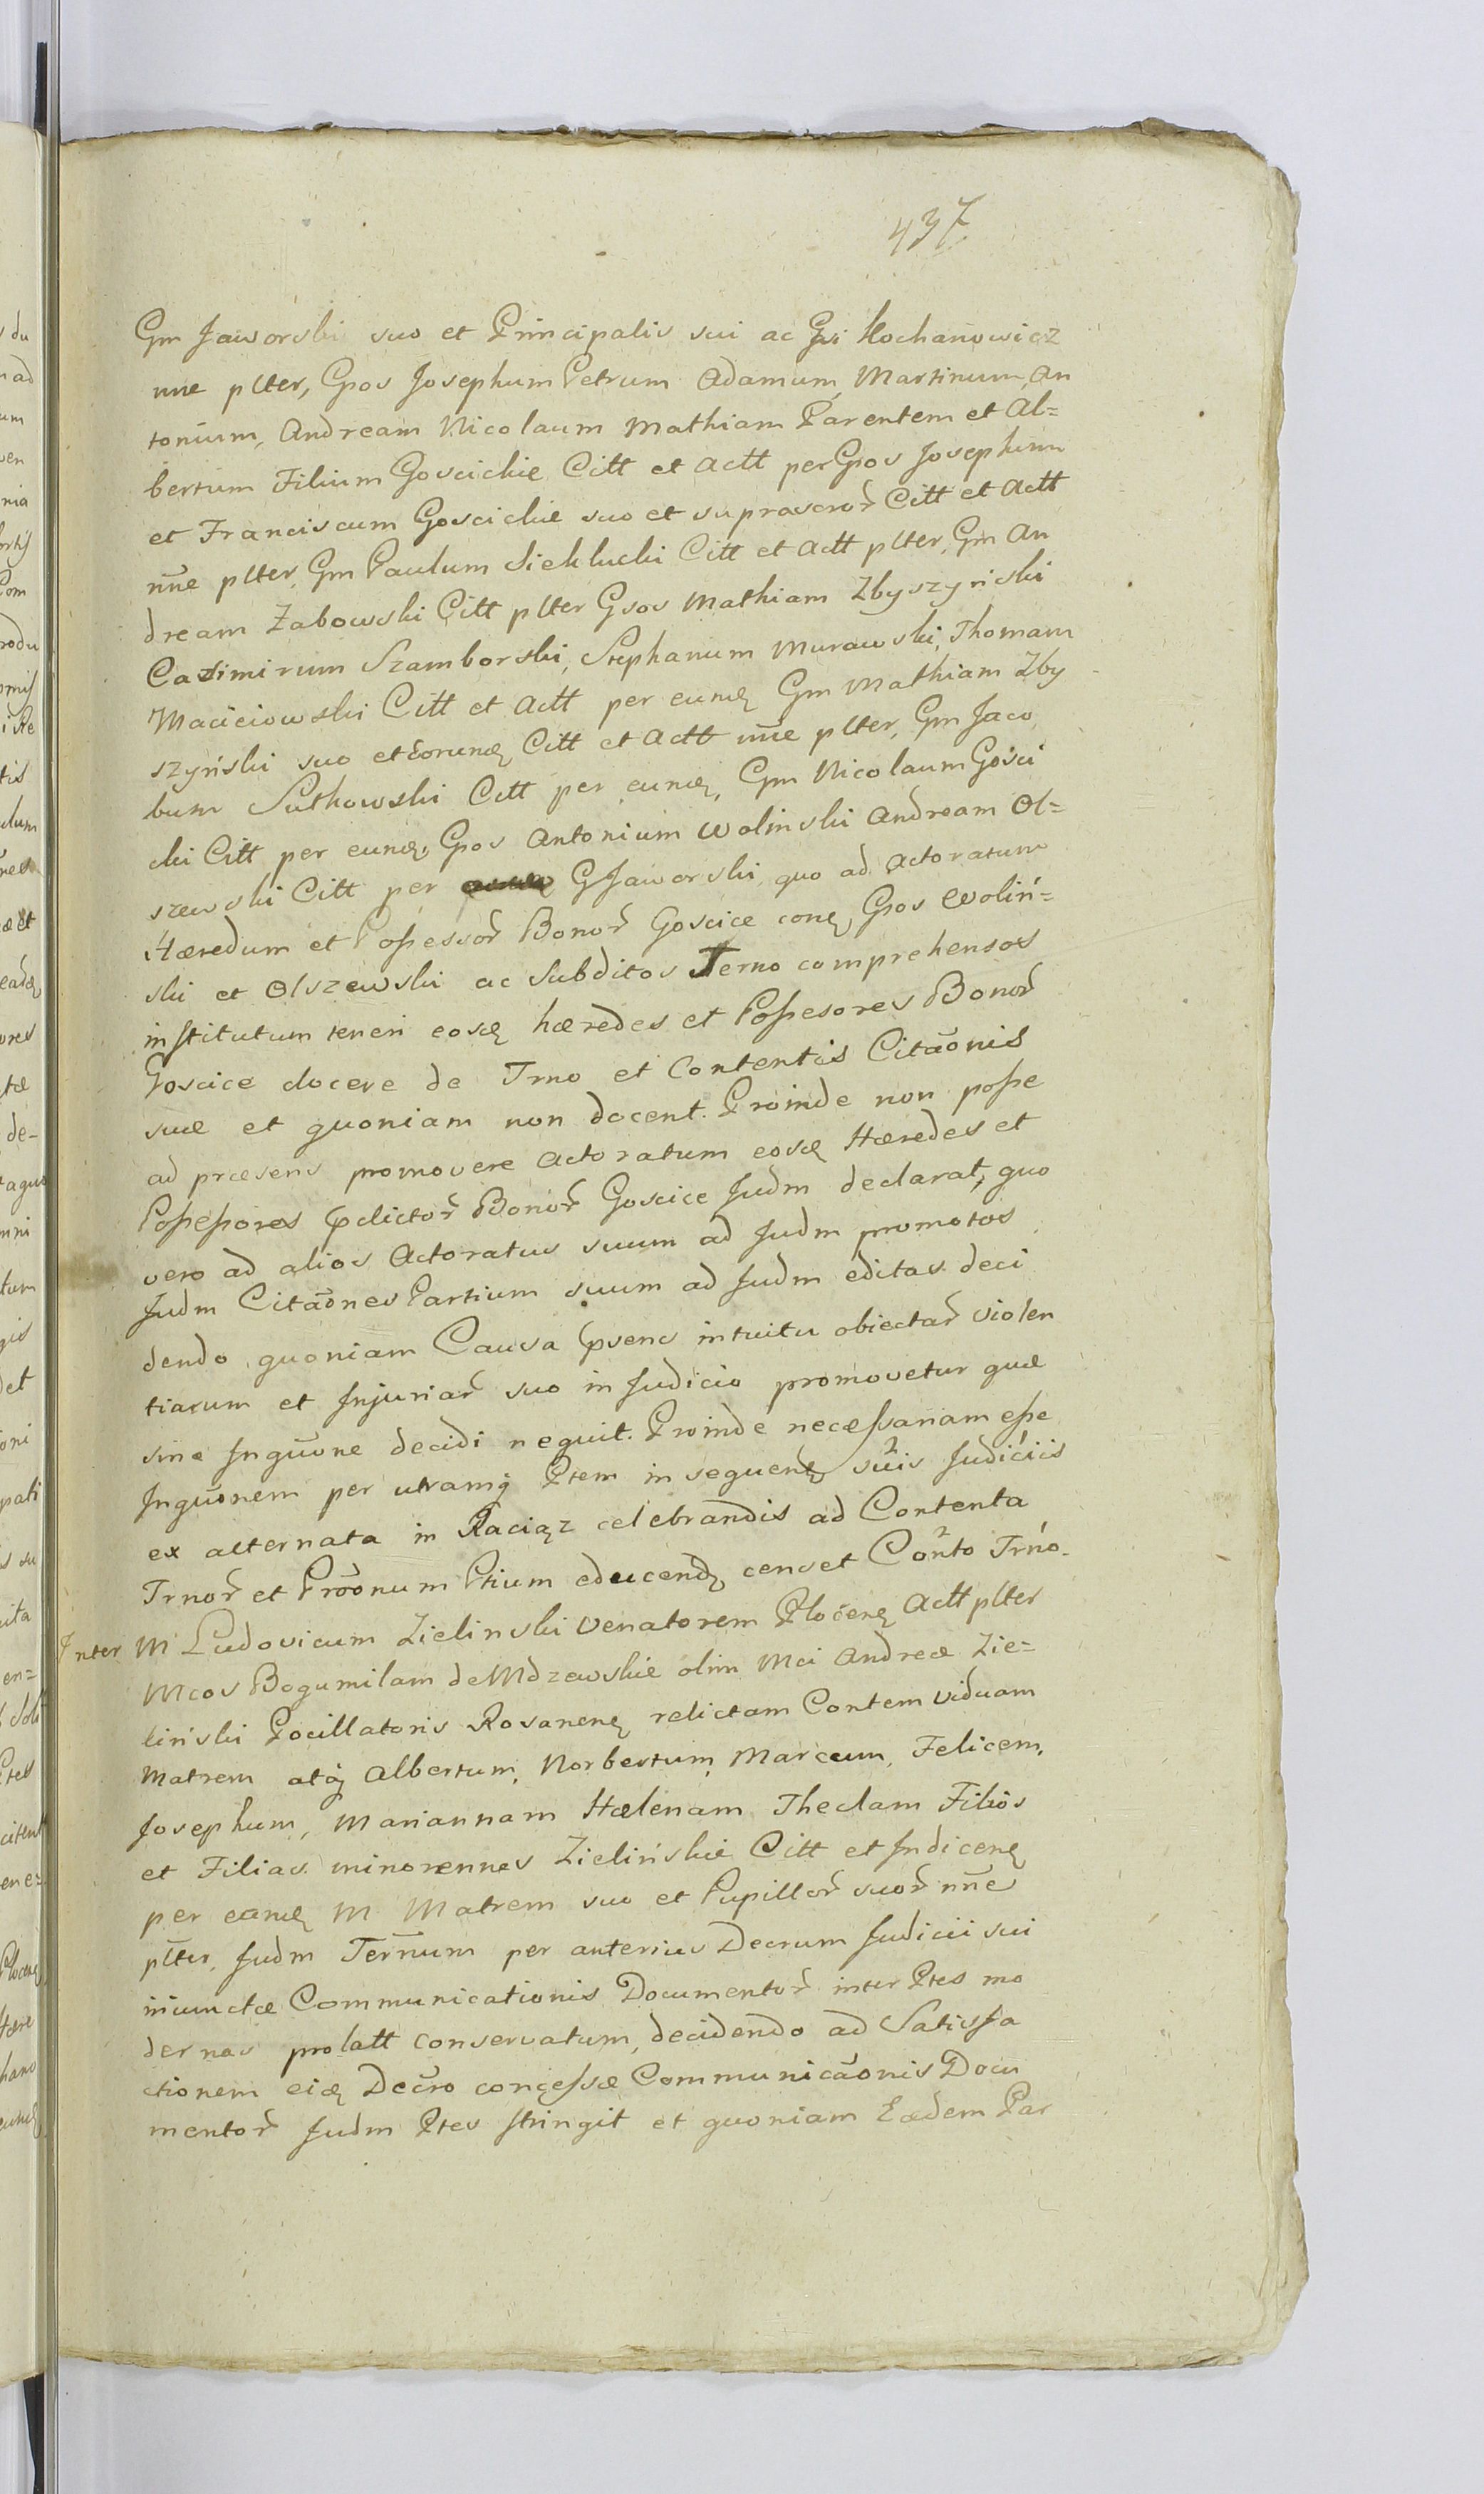 437
Gm Jaworski suo et Principalis sui ac Gsi Kochanowicz
nne plter, Gsos Josephum Petrum Adamum, Martinum, An
tonium, Andream Nicolaum Mathiam Parentem et Al=
bertum Filium Goscickie Citt et Actt per Gsos Josephum
et Franciscum Goscickie suo et suprascror̃ Citt et Actt
nñe plter, Gm Paulum Siekłucki Citt et Actt plter, Gm An
dream Zabowski Citt plter Gsos Mathiam Zbyszyński
Casimirum Szamborski, Stephanum Murawski, Thomam
Maciciowski Citt et Actt per eumđ Gm Mathiam Zby
szyński suo et Eorumđ Citt et Actt nñe plter, Gm Jaco
bum Sutkowski Citt per eumđ, Gm Nicolaum Gości
cki Citt per eumđ, Gsos Antonium Wolinski Andream Ol=
szewski Citt per G Jaworski, quo ad Actoratum
Hæredum et Poßessor̃ Bonor̃ Goscice conđ, Gsos Woliń=
ski et Olszewski ac Subditos Terno comprehensos
institutum teneri eosđ hæredes et Poßesores Bonor̃
Goscice docere de Trno et Contentis Citãonis
suæ et quoniam non docent. Proinde non poße
ad præsens promovere Actoratum eosđ Hæredes et
Poßeßores pdictor̃ Bonor̃ Goscice Judm declarat, quo
vero ad alios Actoratus suum ad Judm promotos
Judm Citãones Partium suum ad Judm editas deci
dendo, quoniam Causa psens intuitu obiectar̃ violen
tiarum et Injuriar̃ suo in Judicio promovetur quæ
sine Inqũone decidi nequit. Proinde necæßariam eße
Inqũonem per utramq Ptem in sequenđ sũis Judiciis
ex alternata in Raciąz celebrandis ad Contenta
Trnor̃ et Prõonum Ptium educenđ censet Coñto Trño.
Inter M Ludovicum Zielinski Venatorem Plocenđ Actt plter
Mcos Bogumilam de Mdzewskie olim Mci Andreæ Zie=
liński Pocillatoris Rosanenđ relictam Contem viduam
Matrem atq Albertum, Norbertum, Marcum, Felicem,
Josephum, Mariannam Hælenam Theclam Filios
et Filias minorennes Zielińskie Citt et Indicenđ
per eamđ M Matrem suo et Pupillor̃ suor̃ nñe
plter, Judm Terñum per anterius Decrum Judicii sui
iniunctæ Communicationis Documentor̃ inter Ptes mo
dernas prolatt conservatum, decidendo ad Satisfa
ctionem eiđ Decro conceßæ Communicãonis Docu
mentor̃ Judm Ptes stringit et quoniam Eædem Par